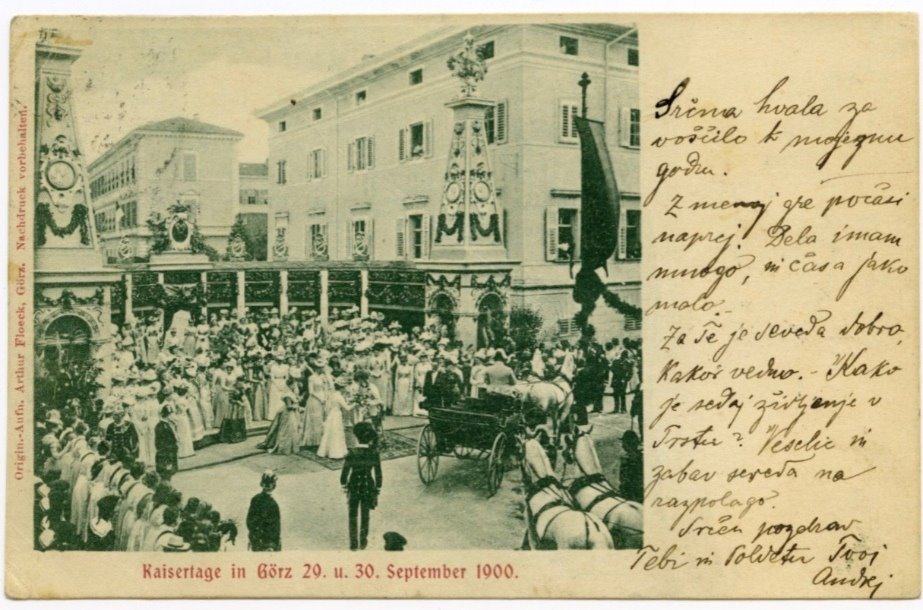 Origin.-Aufn. Arthur Floeck, Görz. Nachdruck vorbehalten.
Kaisertage in Görz 29. u. 30. September 1900.
Srčna hvala za
voščilo k mojemu
godu.
Z menoj gre počasi
naprej. Dela imam
mnogo, in časa jako
malo.
Za Te je seveda dobro,
kakor vedno. - Kako
je sedaj življenje v
Trstu? Veselic in
zabav seveda na
razpolago.
Srčen pozdrav
Tebi in Tvoj
Andrej